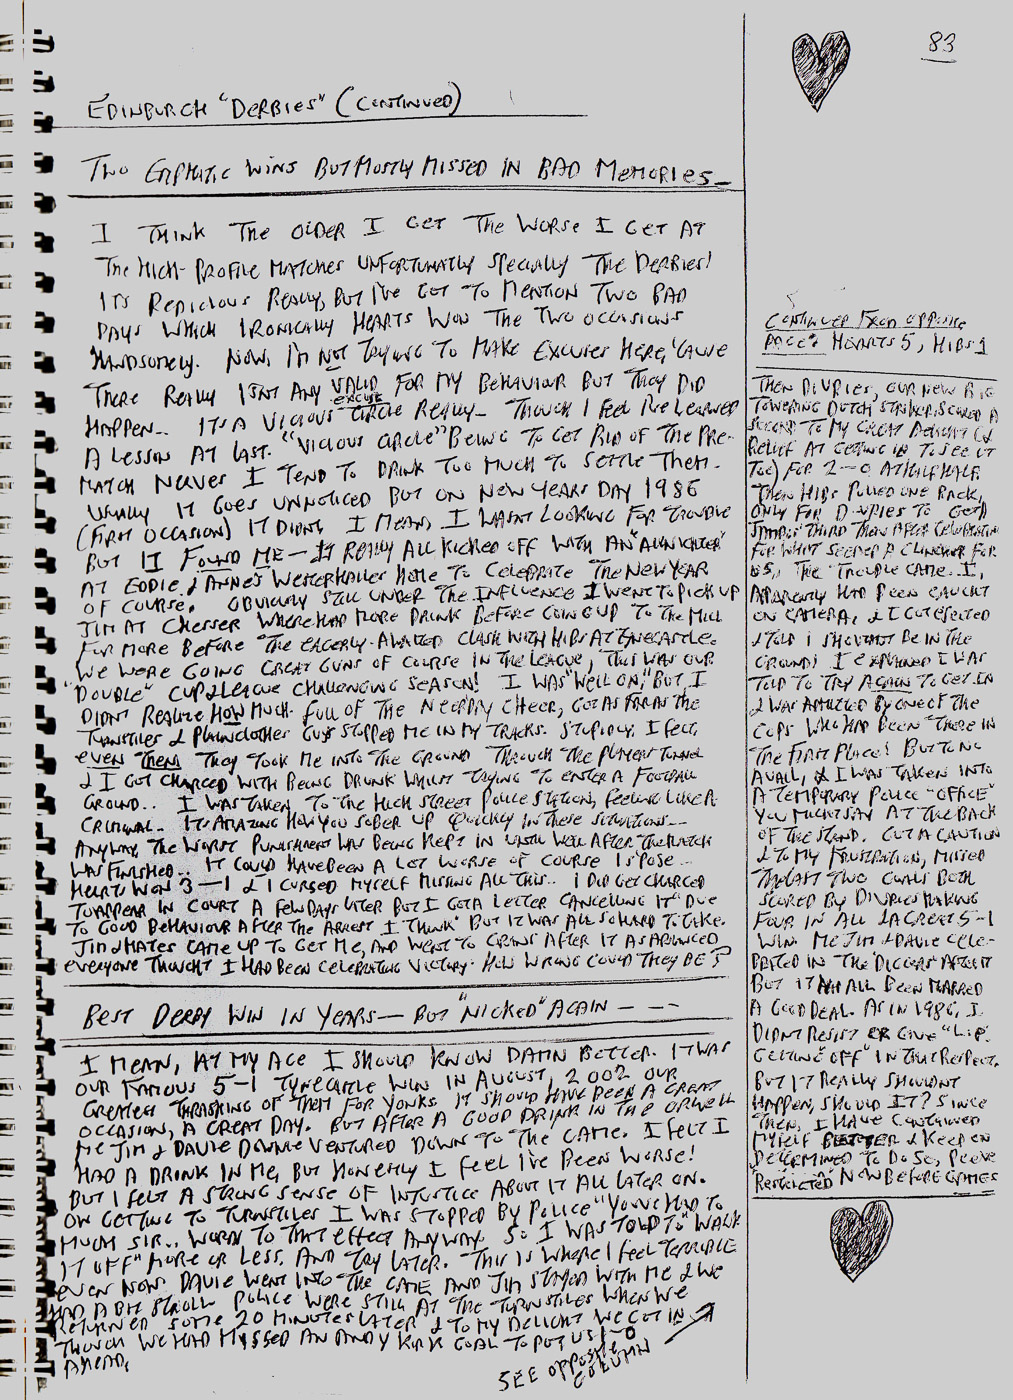 83
EDINBURGH "DERBIES" (CONTINUED)
TWO EMPHATIC WINS BUT MOSTLY MISSED IN BAD MEMORIES_
I THINK THE OLDER I GET THE WORSE I GET AT
THE HIGH-PROFILE MATCHES UNFORTUNATLY SPECIALLY THE DERBIES!
ITS REDICIOUS REALLY, BUT I'VE GOT TO MENTION TWO BAD
DAYS WHICH IRONICALLY HEARTS WON THE TWO OCCASIONS
HANDSOMELY. NOW, I'M NOT TRYING TO MAKE EXCUSES HERE, 'CAUSE
THERE REALLY ISNT ANY VALID EXCUSE FOR MY BEHAVIOUR BUT THEY DID
HAPPEN.. ITS A VICIOUS CIRCLE REALLY_ THOUGH I FEEL I'VE LEARNED
A LESSON AT LAST. "VICIOUS CIRCLE" BEING TO GET RID OF THE PRE-
MATCH NERVES I TEND TO DRINK TOO MUCH TO SETTLE THEM.
USUALLY IT GOES UNNOTICED BUT ON NEW YEARS DAY 1986
(FIRST OCCASION) IT DIDNT, I MEAN, I WASNT LOOKING FOR TROUBLE
BUT IT FOUND ME — IT REALLY ALL KICKED OFF WITH AN
AT EDDIE & ANNE'S WESTERHAILES HOME TO CELEBRATE THE NEW YEAR
OF COURSE. OBVIOUSLY STILL UNDER THE INFLUENCE I WENT TO PICK UP
JIM AT CHESSER WHERE HAD MORE DRUNK BEFORE GOING UP TO THE MILL
FOR MORE BEFORE THE EAGERLY-AWAITED CLASH WITH HIBS AT TYNECASTLE.
WE WERE GOING GREAT GUNS OF COURSE IN THE LEAGUE, THIS WAS OUR
"DOUBLE" CUP & LEAGUE CHALLENGING SEASON! I WAS "WELL ON," BUT I
DIDNT REALIZE HOW MUCH. FULL OF THE NEERDAY CHEER, GOT AS FAR AS THE
TURNSTILES & PLAINCLOTHES GUYS STOPPED ME IN MY TRACKS. STUPIDLY, I FELT,
EVEN THEN THEY TOOK ME INTO THE GROUND THROUGH THE PLAYERS TUNNEL
& I GOT CHARGED WITH BEING DRUNK WHILST TRYING TO ENTER A FOOTBALL
GROUND.. I WAS TAKEN TO THE HIGH STREET POLICE STATION, FEELING LIKE A
CRIMINAL.. ITS AMAZING HOW YOU SOBER UP QUICKLY IN THESE SITUATIONS__
ANYWAY, THE WORST PUNISHMENT WAS BEING KEPT IN UNTIL WELL AFTER THE MATCH
WAS FINISHED.. IT COULD HAVE BEEN A LOT WORSE OF COURSE I S'POSE__
HEARTS WON 3—1 & I CURSED MYSELF MISSING ALL THIS.. I DID GET CHARGED
TO APPEAR IN COURT A FEW DAYS LATER BUT I GOT A LETTER CANCELLING IT "DUE
TO GOOD BEHAVIOUR AFTER THE ARREST I THINK" BUT IT WAS ALL SO HARD TO TAKE.
JIM & MATES CAME UP TO GET ME, AND WENT TO AFTER IT AS ARRANGED
EVERYONE THOUGHT I HAD BEEN CELEBRATING VICTORY. HOW WRONG COULD THEY BE?
BEST DERBY WIN IN YEARS — BUT "NICKED" AGAIN — — —
I MEAN, AT MY AGE I SHOULD KNOW DAMN BETTER. IT WAS
OUR FAMOUS 5-1 TYNECASTLE WIN IN AUGUST, 2002 OUR
GREATEST THRASHING OF THEM FOR YONKS. IT SHOULD HAVE BEEN A GREAT
OCCASION, A GREAT DAY. BUT AFTER A GOOD DRINK IN THE ORWELL
ME JIM & DAVIE DOWNIE VENTURED DOWN TO THE GAME. I FELT I
HAD A DRINK IN ME, BUT HONESTLY I FEEL I'VE BEEN WORSE!
BUT I FELT A STRONG SENSE OF INJUSTICE ABOUT IT ALL LATER ON.
ON GETTING TO TURNSTILES I WAS STOPPED BY POLICE "YOUVE HAD TO
MUCH SIR.. WORDS TO THAT EFFECT ANYWAY. SO I WAS TOLD TO "WALK
IT OFF" MORE OR LESS. AND TRY LATER. THIS IS WHERE I FEEL TERRIBLE
EVEN NOW. DAVIE WENT INTO THE GAME AND JIM STAYED WITH ME & WE
HAD A BIT STROLL POLICE WERE STILL AT THE TURNSTILES WHEN WE
RETURNED SOME 20 MINUTES LATER & TO MY DELIGHT WE GOT IN
THOUGH WE HAD MISSED AN ANDY KIRK GOAL TO PUT US 1—0
AHEAD,
SEE OPPOSITE
COLUMN
CONTINUED FROM OPPOSITE
PAGE: HEARTS 5, HIBS 1
THEN DIVRIES, OUR NEW BIG
TOWERING DUTCH STRIKER SCORED A
SECOND TO MY GREAT DELIGHT (&
RELIEF AT GETTING IN TO SEE IT
TOO) FOR 2—0 AT HALF HALF.
THEN HIBS PULLED ONE BACK,
ONLY FOR DIVRIES TO GET
JAMBOS' THIRD THEN AFTER CELEBRATION
FOR WHAT SEEMED A CLINCHER FOR
US, THE TROUBLE CAME. I,
APPARENTLY HAD BEEN CAUGHT
ON CAMERA, & I GOT EJECTED
& TOLD I SHOULDNT BE IN THE
GROUND! I EXPLAINED I WAS
TOLD TO TRY AGAIN TO GET IN
& WAS ADMITTED BY ONE OF THE
COPS WHO HAD BEEN THERE IN
THE FIRST PLACE! BUT TO NO
AVAIL, & I WAS TAKEN INTO
A TEMPORARY POLICE "OFFICE"
YOU MIGHT SAY AT THE BACK
OF THE STAND. GOT A CAUTION
& TO MY FRUSTRATION, MISSED
THE LAST TWO GOALS BOTH
SCORED BY DIVRIES MAKING
FOUR IN ALL & A GREAT 5-1
WIN. ME JIM & DAVIE CELE-
BRATED IN THE "DIGGERS" AFTER IT
BUT IT HAD ALL BEEN MARRED
A GOOD DEAL. AS IN 1986, I
DIDNT RESIST OR GIVE "LIP".
GETTING "OFF" IN THAT RESPECT.
BUT IT REALLY SHOULDNT
HAPPEN, SHOULD IT? SINCE
THEN, I HAVE CONTAINED
MYSELF BETTER & KEEP ON
DETERMINED TO DO SO, BEEN
"RESTRICTED" NOW BEFORE GAMES